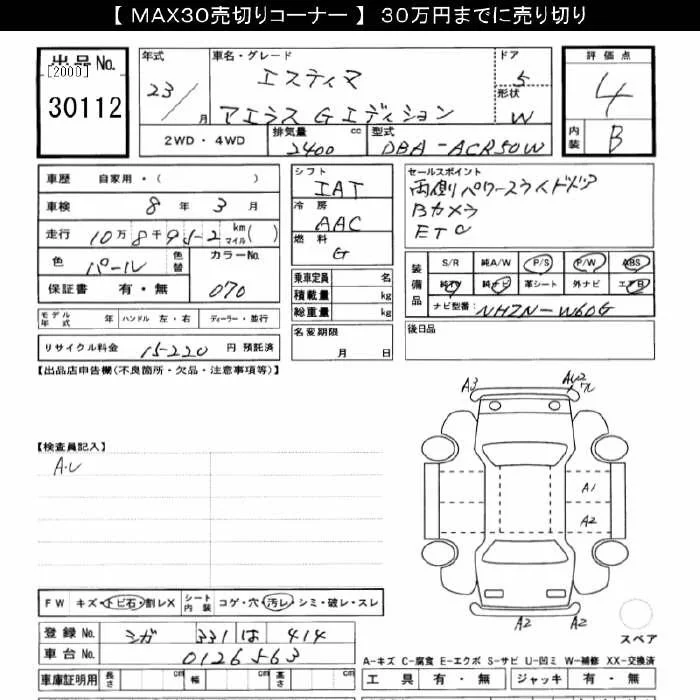 【 MAX30売切りコーナー 】 30万円までに売り切り
出品 No. 年式 車名・グレード ドア 評価点
[2000] エスティマ 5
30112 23/ 月 アエラス G エディション 形状 W 4
2WD・4WD 排気量 2400 cc 型式 DBA-ACR50W 内装 B
車歴 自家用・( )
車検 8 年 3 月
走行 10万8千952 km マイル ( )
色 パール 色替 カラーNo.
保証書 有・無 070
シフト IAT
冷房 AAC
燃料 G
乗車定員 名
積載量 kg
総重量 kg
名変期限
月 日
セールスポイント
両側パワースライドドア
Bカメラ
ETC
装備品 S/R 純A/W P/S P/W ABS
純TV 純ナビ 革シート 外ナビ エアB
ナビ型番: NHZN-W60G
後日品
モデル年式 年 ハンドル 左・右 ディーラー・並行
リサイクル料金 15-220 円 預託済
【出品店申告欄(不良箇所・欠品・注意事項等)】
A3
【検査員記入】
A.U
A1
A2
A2 A2
スペア
FW キズ・トビ石・割レX シート内装 コゲ・穴・汚レ・シミ・破レ・スレ
登録 No. シガ 331 は 414
車台 No. 0126563
車庫証明用 長さ cm 幅 cm 高さ cm
A-キズ C-腐食 E-エクボ S-サビ U-凹ミ W-補修 XX-交換済
工具 有・無 ジャッキ 有・無